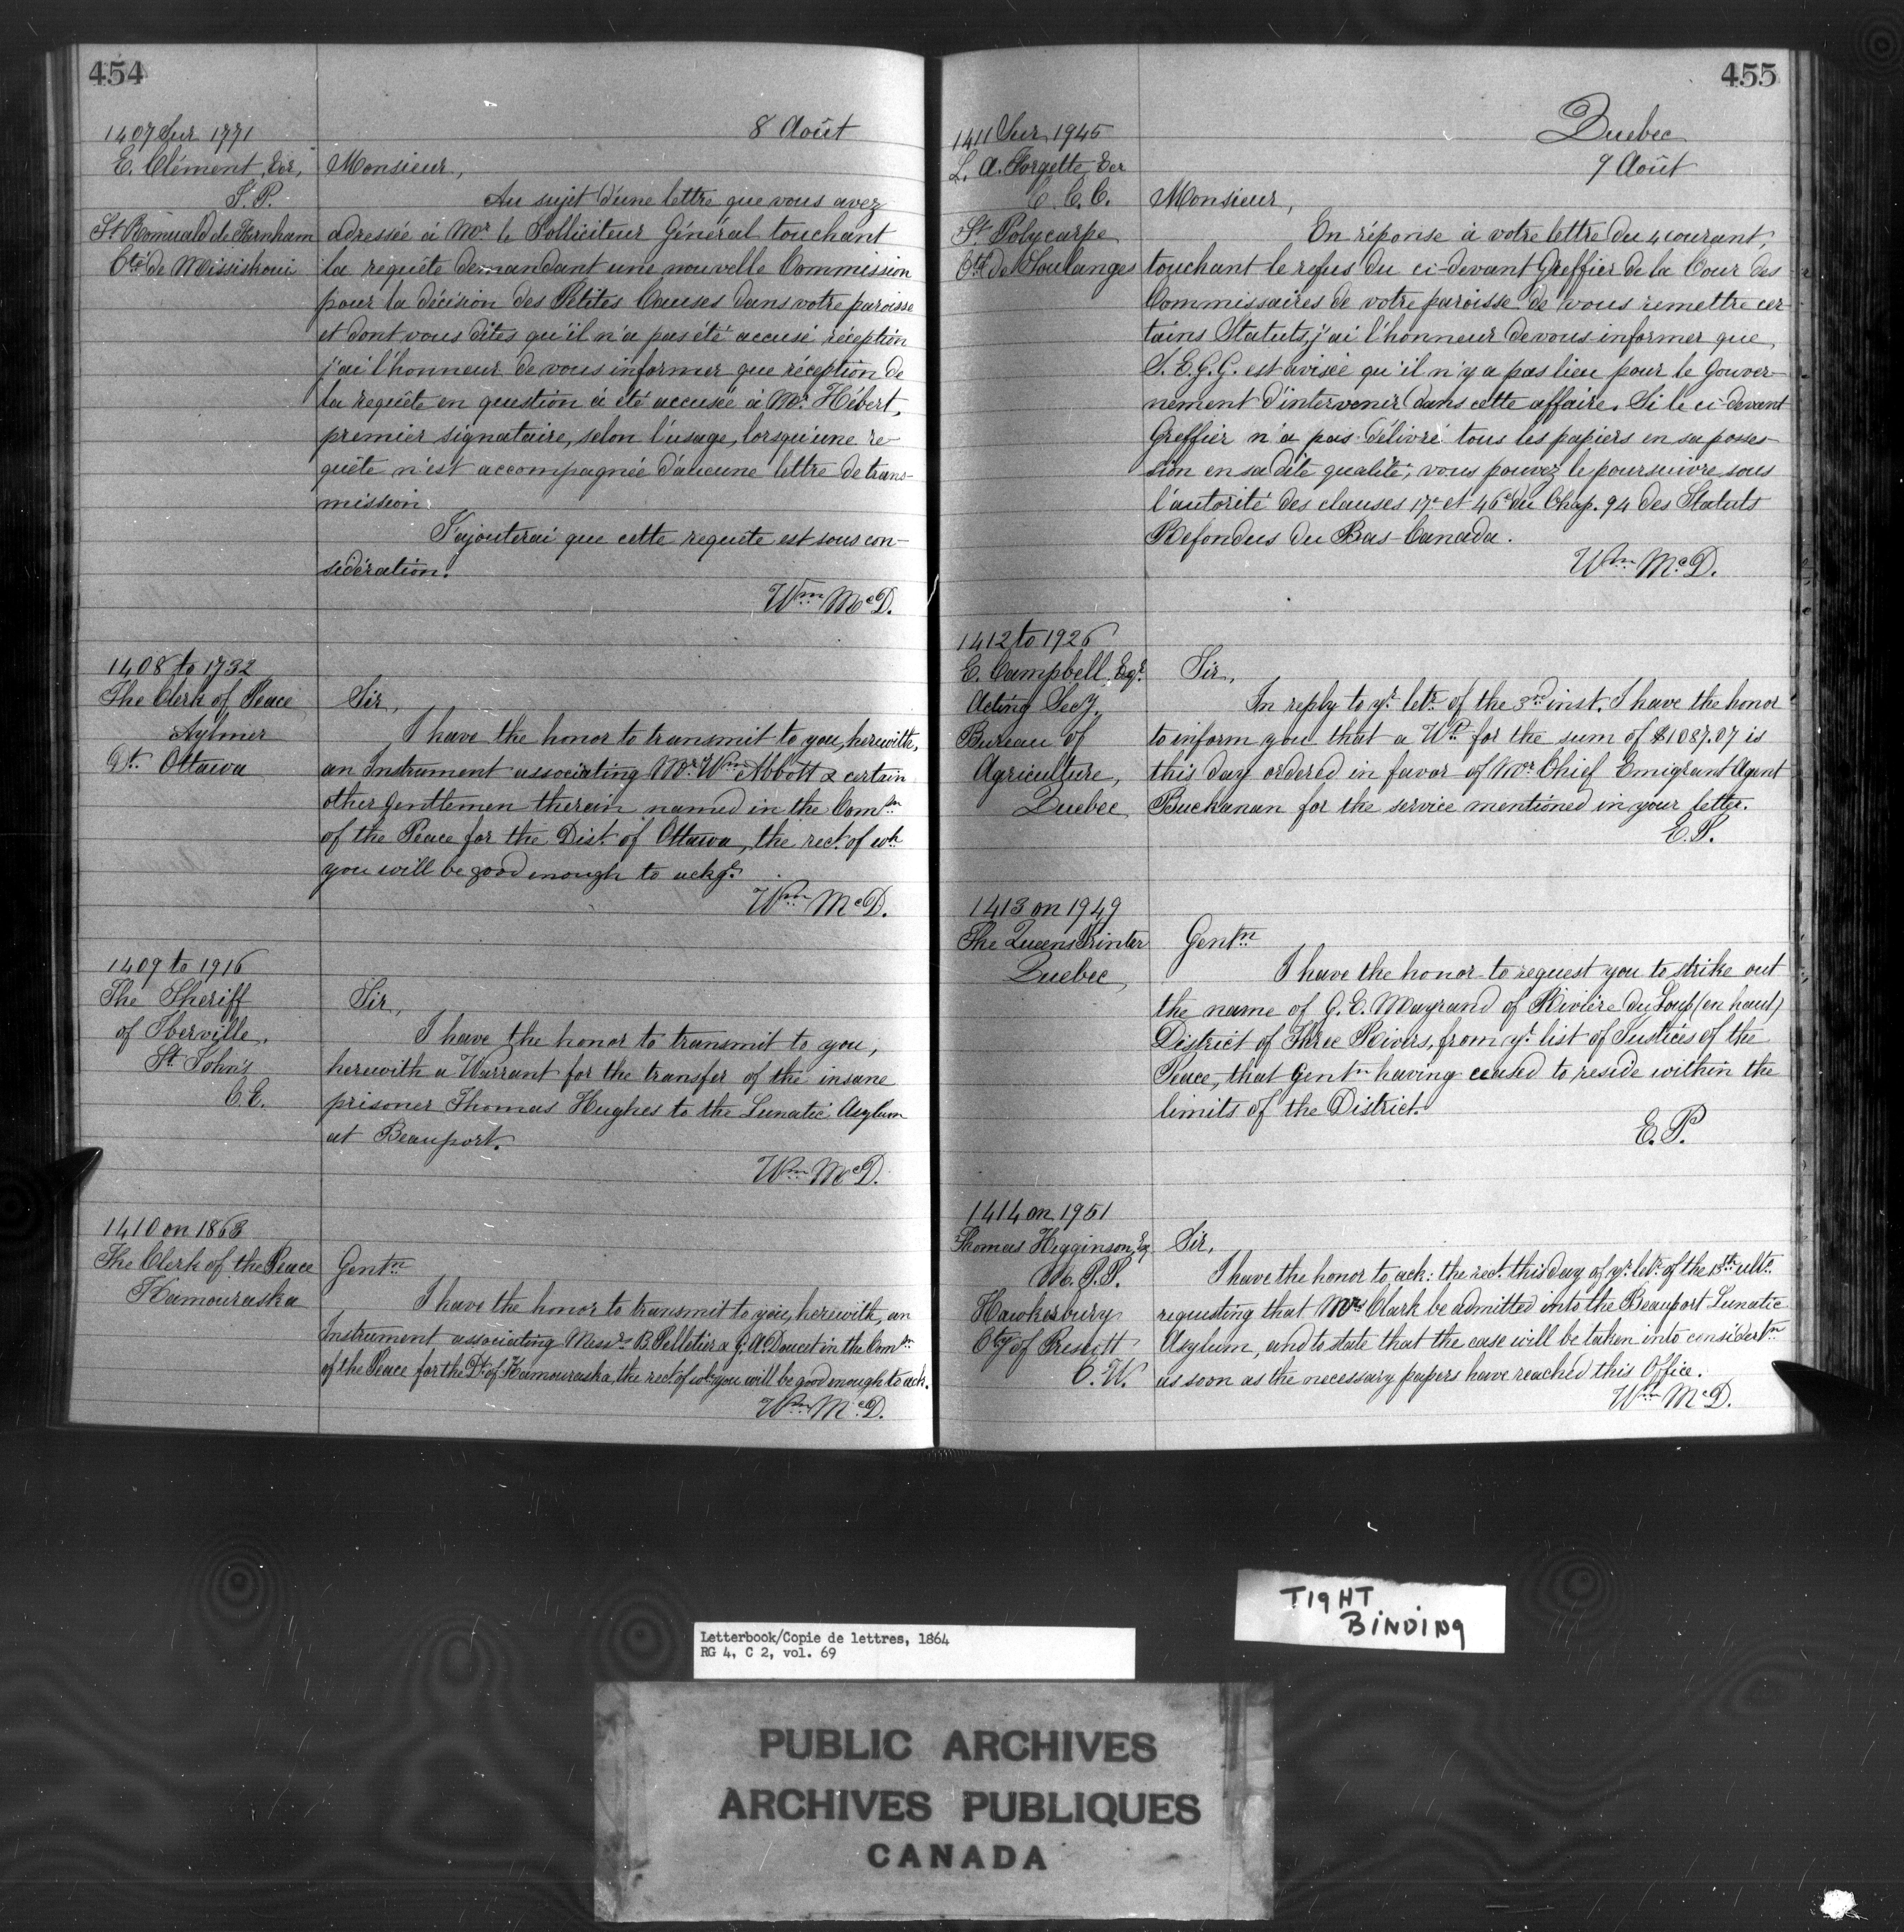 454
8 Août
1407 Sur 1771
E. Clément, Ecr,
J. P.
St Romuald de Farnham
Cté de Missiskoui
Monsieur,
Au sujet d'une lettre que vous avez
adressée à Mr le Solliciteur Général touchant
la requête demandant une nouvelle Commission
pour la décision des Petites Causes dans votre paroisse
et dont vous dites qu'il n'a pas été accusé réception
j'ai l'honneur de vous informer que réception de
la requête en question a été accusée à Mr Hébert,
premier signataire, selon l'usage, lorsqu'une re-
quête n'est accompagnée d'aucune lettre de trans-
mission.
J'ajouterai que cette requête est sous con-
sidération.
Wm McD.
1408 to 1732
The Clerk of Peace
Aylmer
Dt. Ottawa
Sir,
I have the honor to transmit to you, herewith,
an Instrument associating Mr. Wm Abbott & certain
other Gentlemen therein named in the Comsn
of the Peace for the Dist. of Ottawa, the rect. of wh
you will be good enough to ackge.
Wm McD.
1409 to 1916
The Sheriff
of Iberville,
St. John's
C.E.
Sir,
I have the honor to transmit to you,
herewith a Warrant for the transfer of the insane
prisoner Thomas Hughes to the Lunatic Asylum
at Beauport.
Wm McD.
1410 on 1863
The Clerk of the Peace
Kamouraska
Gentn
I have the honor to transmit to you, herewith, an
Instrument associating Messrs B. Pelletier & G. A. Doucet in the Comsn
of the Peace for the Dt. of Kamouraska, the rect. of wh. you will be good enough to ack.
Wm McD.
455
Quebec
9 Août
1411 Sur 1945
L. A. Forgette Ecr
C. C. C.
St Polycarpe
Cté de Soulanges
Monsieur,
En réponse à votre lettre du 4 courant,
touchant le refus du ci-devant Greffier de la Cour des
Commissaires de votre paroisse de vous remettre cer-
tains Statuts, j'ai l'honneur de vous informer que
S. E. G. G. est avisée qu'il n'y a pas lieu pour le Gouver-
nement d'intervenir dans cette affaire. Si le ci-devant
Greffier n'a pas délivré tous les papiers en sa posses-
sion en sa dite qualité, vous pouvez le poursuivre sous
l'autorité des clauses 17e et 46e du Chap. 94 des Statuts
Refondus du Bas-Canada.
Wm McD.
1412 to 1926
E. Campbell, Esqr.
Acting Secy.
Bureau of
Agriculture,
Quebec
Sir,
In reply to yr. letr. of the 3rd inst. I have the honor
to inform you that a Wt. for the sum of $1087.07 is
this day ordered in favor of Mr Chief Emigrant Agent
Buchanan for the service mentioned in your letter.
E. P.
1413 on 1949
The Queens Printer
Quebec,
Gentn
I have the honor to request you to strike out
the name of G. E. Mayrand of Rivière du Loup (en haut)
District of Three Rivers, from yr. list of Justices of the
Peace, that Gentn having ceased to reside within the
limits of the District.
E. P.
1414 on 1951
Thomas Higginson, Eq
M. P. P.
Hawkesbury
Cty of Prescott
C. W.
Sir,
I have the honor to ack: the rect. this day of yr. letr. of the 13th ulto.
requesting that Mrs Clark be admitted into the Beauport Lunatic
Asylum, and to state that the case will be taken into considertn
as soon as the necessary papers have reached this Office.
Wm McD.
TIGHT
BINDING
Letterbook/Copie de lettres, 1864
RG 4, C 2, vol. 69
PUBLIC ARCHIVES
ARCHIVES PUBLIQUES
CANADA